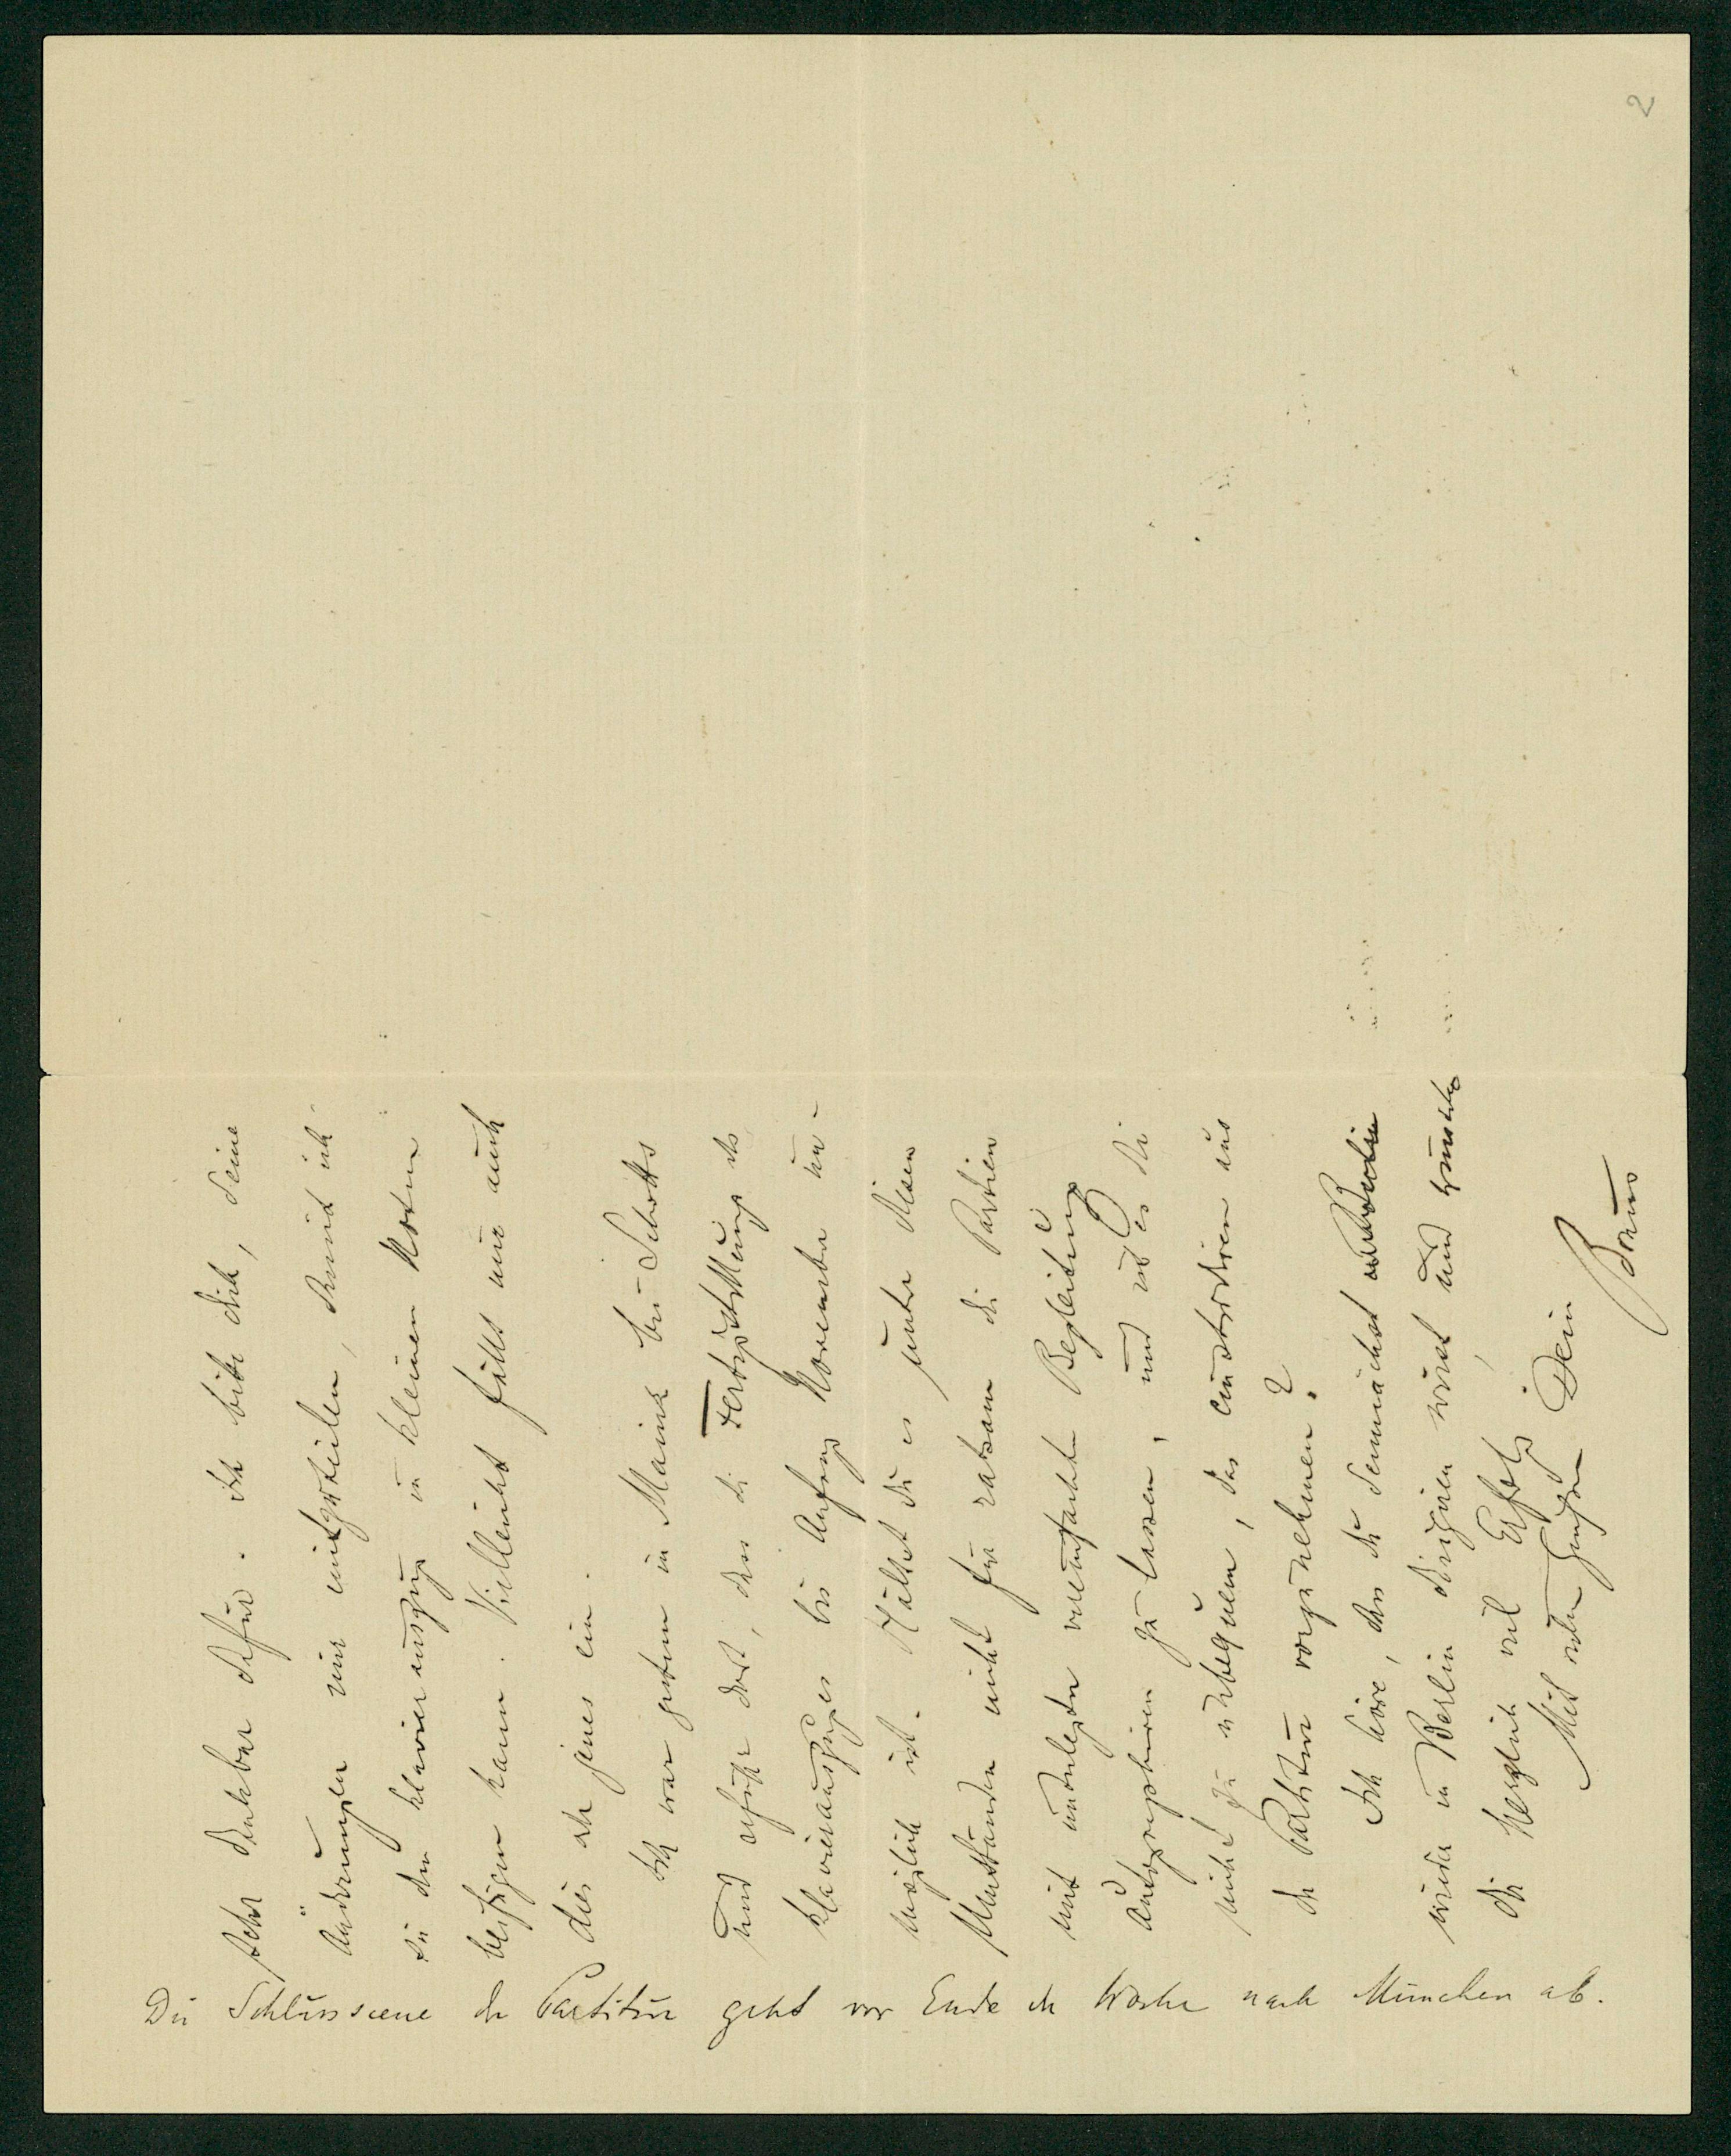 2
sehr dankbar dafür. Ich bitte dich, deine
Änderungen mir mitzuteilen, damit ich
sie dem Klavierauszug in kleinen Noten
beifügen kann. Vielleicht fällt mir auch
dies oder jenes ein.
Ich war gestern in Mainz bei Schotts
und erfuhr dort, dass die Fertigstellung des
Klavierauszuges bis Anfang November un-
möglich ist. Hältst du es unter diesen
Umständen nicht für ratsam die Partien
mit unterlegter vereinfachter Begleitung
autographieren zu lassen, und ist es dir
nicht zu unbequem, das Einstudieren aus
der Partitur vorzunehmen?
Ich höre, dass du demnächst
wieder in Berlin dirigieren wirst, und wünsche
dir herzlich viel Erfolg.
Mit vielen Grüßen Dein
Bruno
Die Schlussscene der Partitur geht vor Ende der Woche nach München ab.